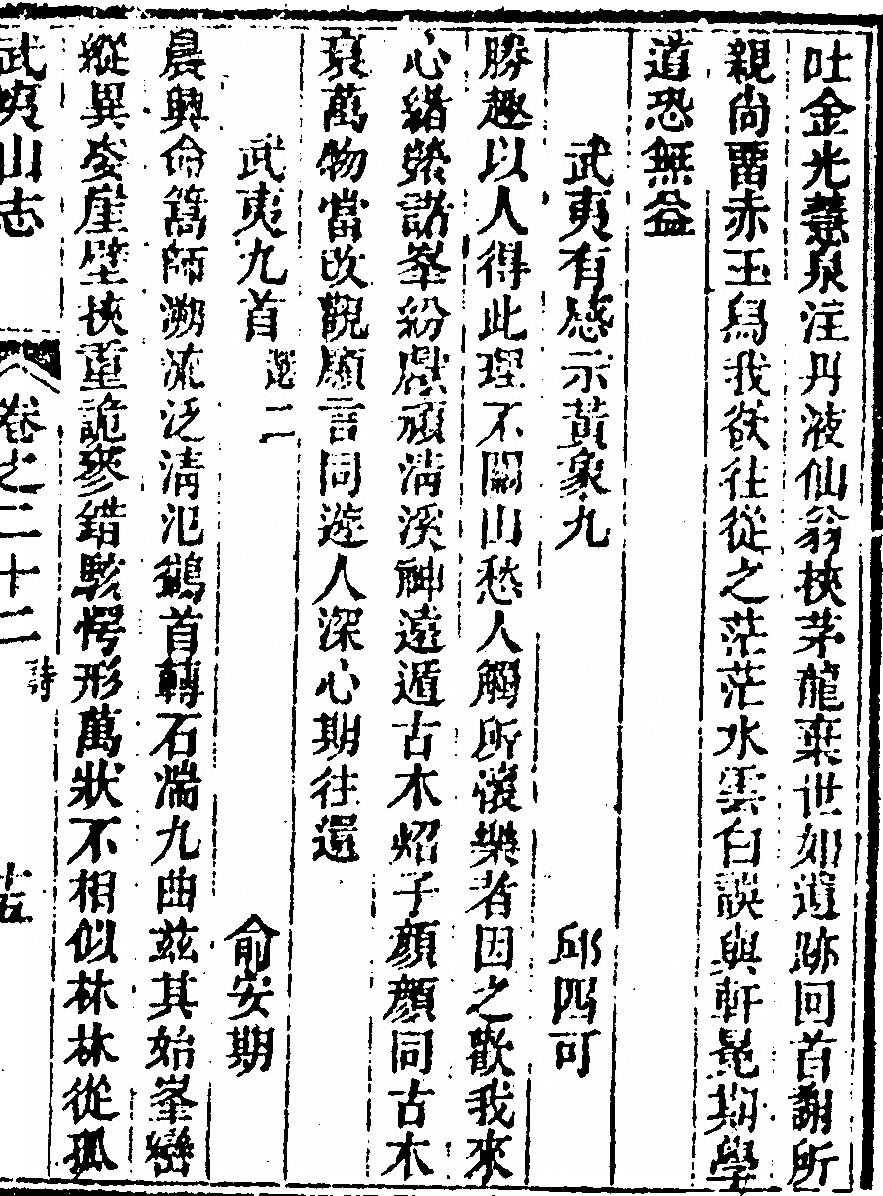 吐金光慧泉注丹液仙翁挾茅龍棄世如遺跡回首謝所
親尚留赤玉舄我欲往從之茫茫水雲白誤與軒冕期學
道恐無益
武夷有感示黃象九 邱四可
勝趣以人得此理不關山愁人觸所懷樂者因之歡我來
心緒縈諸峯紛獻頑淸溪神遠遁古木炤子顏顏同古木
衰萬物當改觀願言同遊人深心期往還
武夷九首 選二 俞安期
晨興命篙師溯流泛淸氾鷁首轉石湍九曲茲其始峯巒
縱異姿崖壁挾重詭參錯駭愕形萬狀不相似林林從孤
武夷山志 卷之二十二 詩 十五